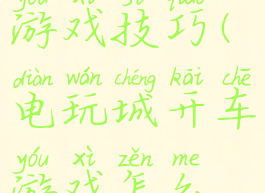 yóu xì jì qiǎo
游戏技巧(
diàn wán chéng kāi chē
电玩城开车
yóu xì zěn me
游戏怎么